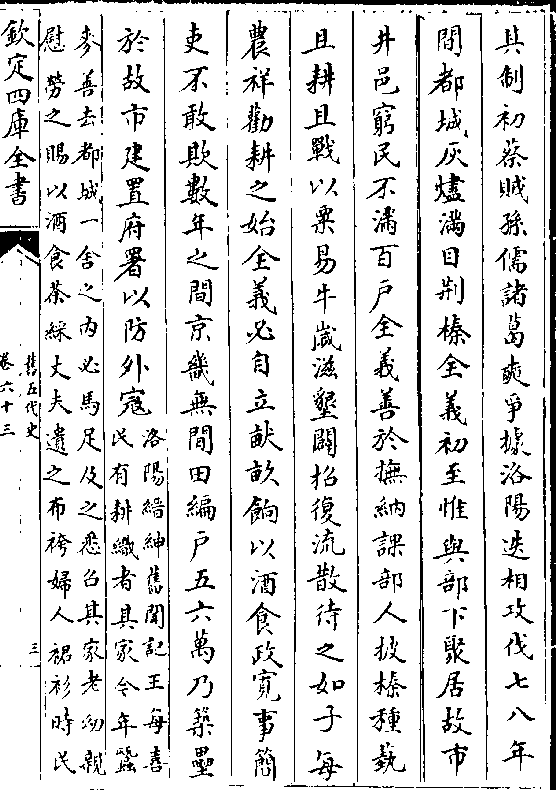 其制初蔡賊孫儒諸葛爽爭據洛陽迭相攻伐七八年
間都城灰燼滿目荆榛全義初至惟與部下聚居故市
井邑窮民不滿百户全義善於撫納課部人披榛種藝
且耕且戰以粟易牛歲滋墾闢招復流散待之如子每
農祥勸耕之始全義必自立畎畝餉以酒食政寛事簡
吏不敢欺數年之間京畿無閒田編户五六萬乃築壘
於故市建置府署以防外寇
洛陽縉紳舊聞記王每喜
民有耕織者其家今年蠶
麥善去都城一舍之内必馬足及之悉召其家老幼親
慰勞之賜以酒食茶綵丈夫遺之布袴婦人裙衫時民
欽定四庫全書
舊五代史
卷六十三
三